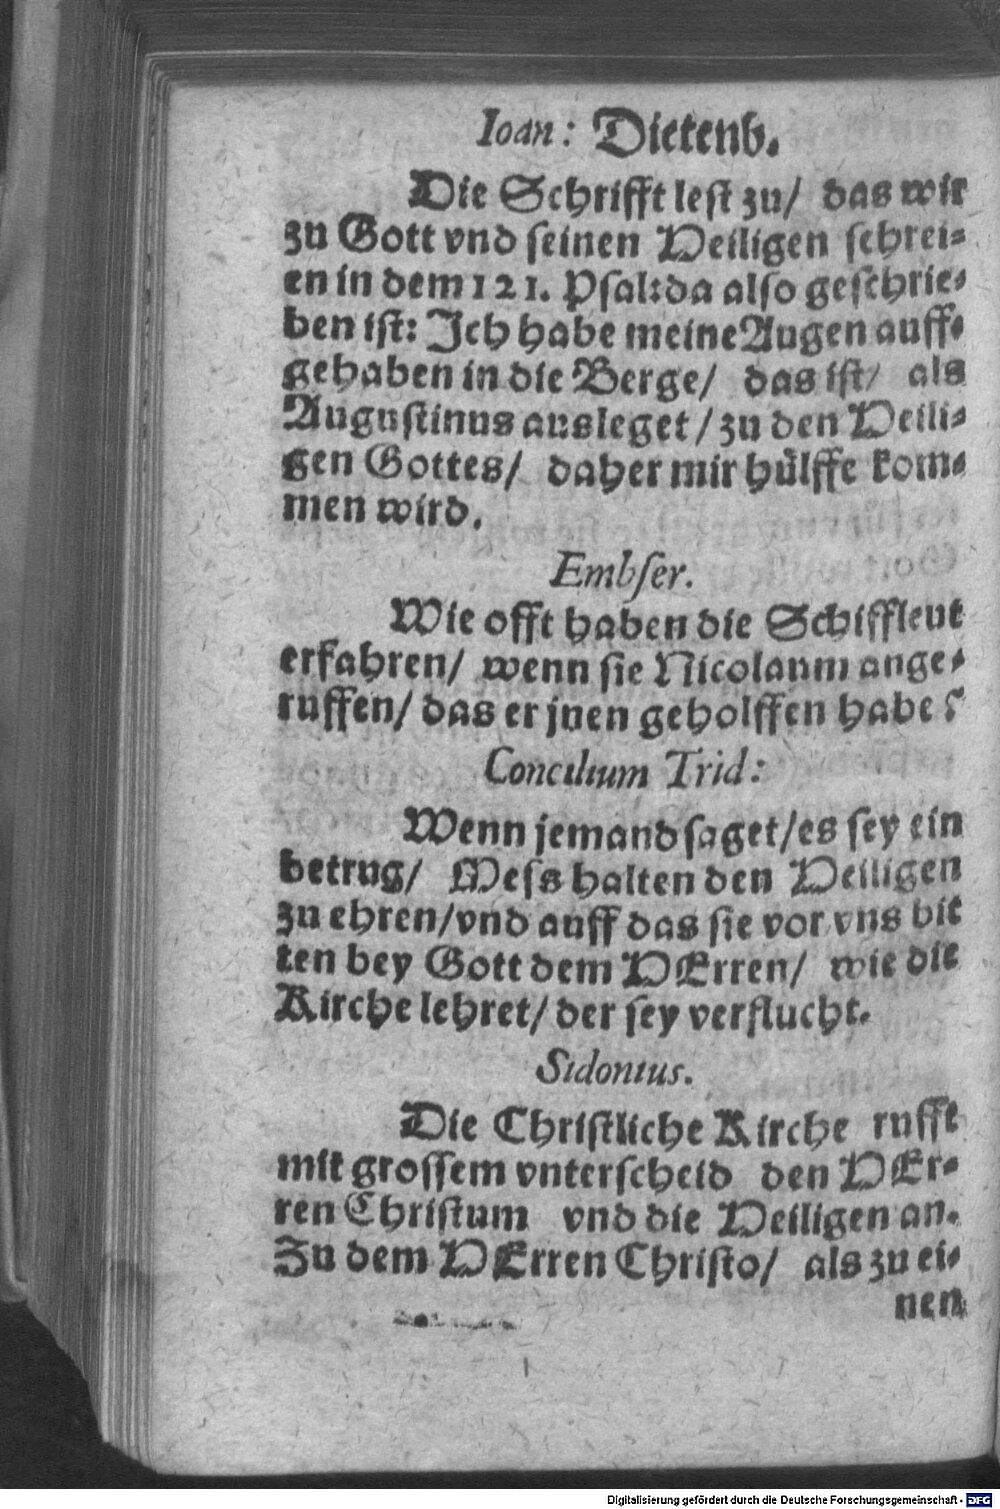 Ioan: Dietenb.
Die Schrifft lest zu/ das wir
zu Gott vnd seinen Heiligen schrei-
en in dem 121. Psal: da also geschrie-
ben ist: Ich habe meine Augen auff-
gehaben in die Berge/ das ist/ als
Augustinus ausleget/ zu den Heili-
gen Gottes/ daher mir hülffe kom-
men wird.
Embser.
Wie offt haben die Schiffleut
erfahren/ wenn sie Nicolaum ange-
ruffen/ das er jnen geholffen habe?
Concilium Trid:
Wenn jemand saget/ es sey ein
betrug/ Mess halten den Heiligen
zu ehren/ vnd auff das sie vor vns bit
ten bey Gott dem HErren/ wie die
Kirche lehret/ der sey verflucht.
Sidonius.
Die Christliche Kirche rufft
mit grossem vnterscheid den HEr-
ren Christum vnd die Heiligen an.
Zu dem HErren Christo/ als zu ei-
nen
Digitalisierung gefördert durch die Deutsche Forschungsgemeinschaft - DFG